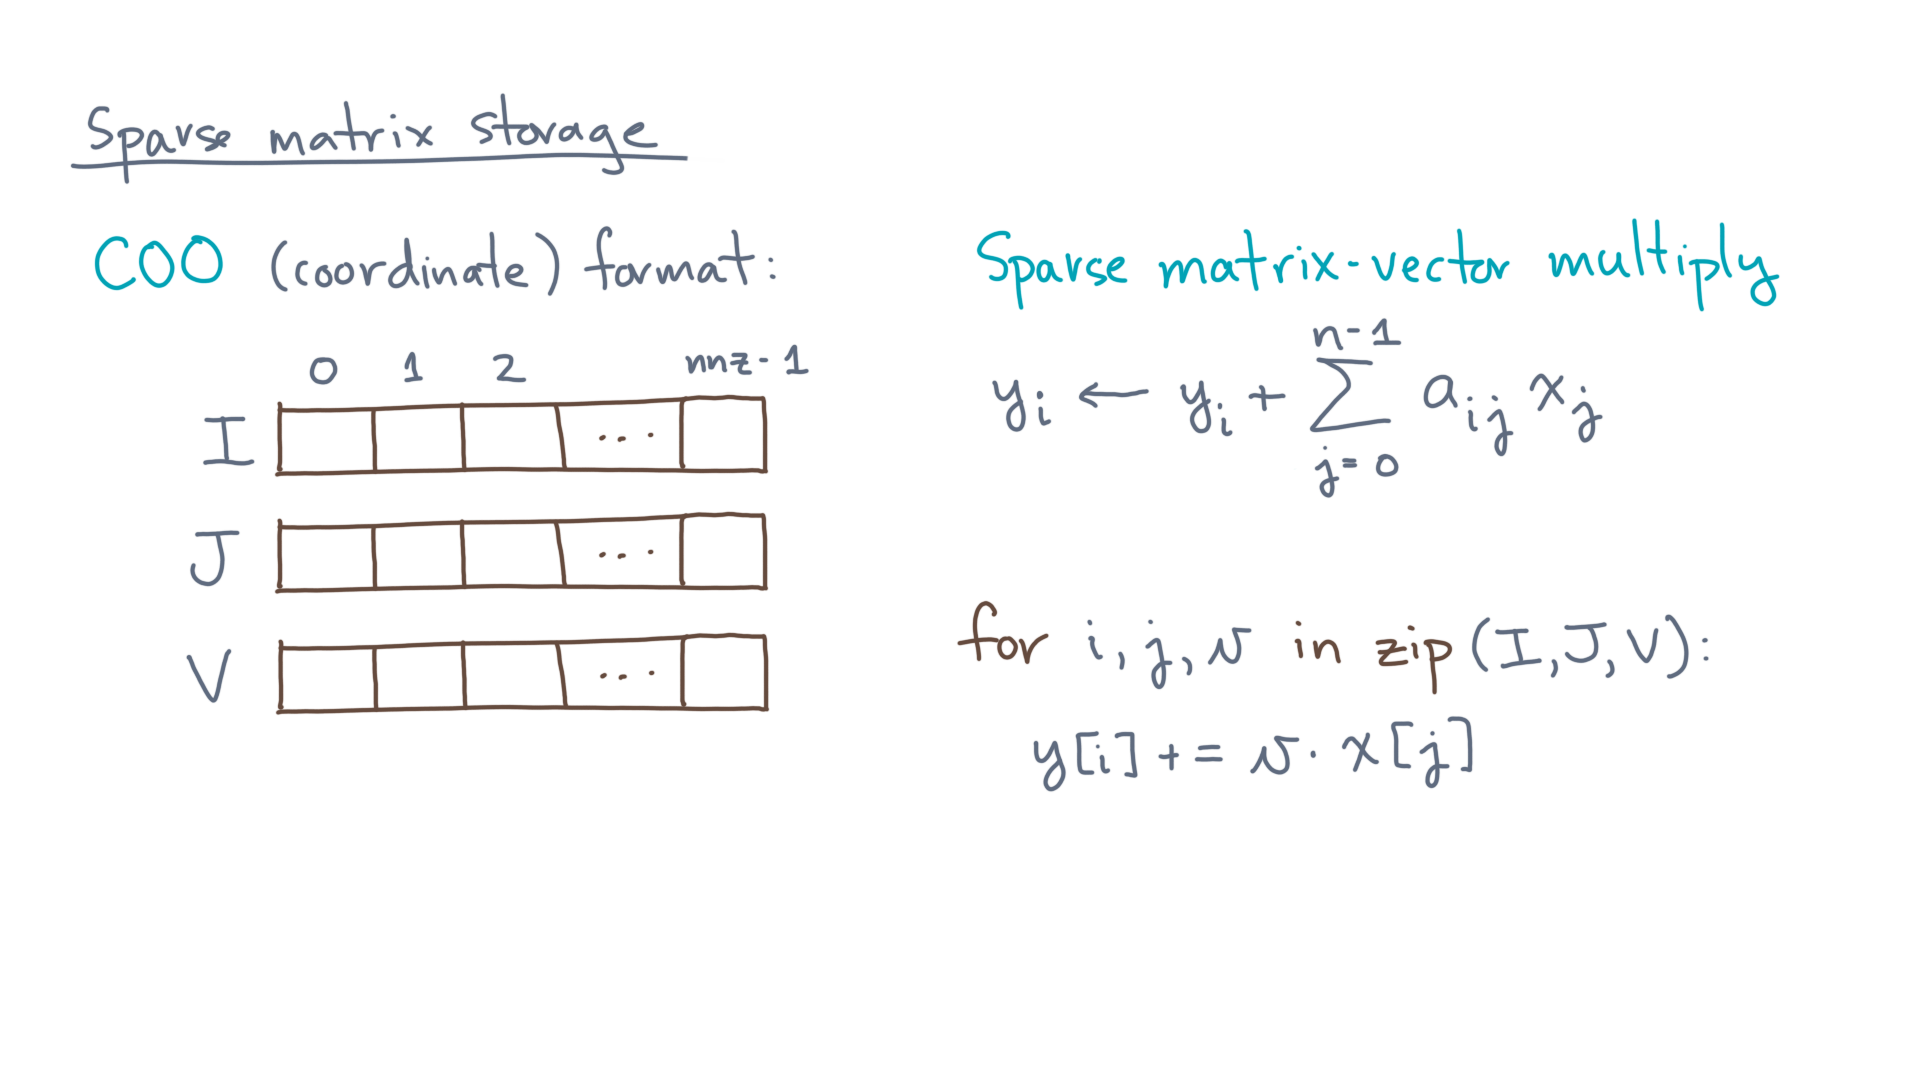 Sparse matrix storage
COO (coordinate) format:
0 1 2 nnz-1
I ...
J ...
V ...
Sparse matrix-vector multiply
n-1
y_i ← y_i + Σ a_ij x_j
j=0
for i, j, v in zip(I, J, V):
y[i] += v · x[j]